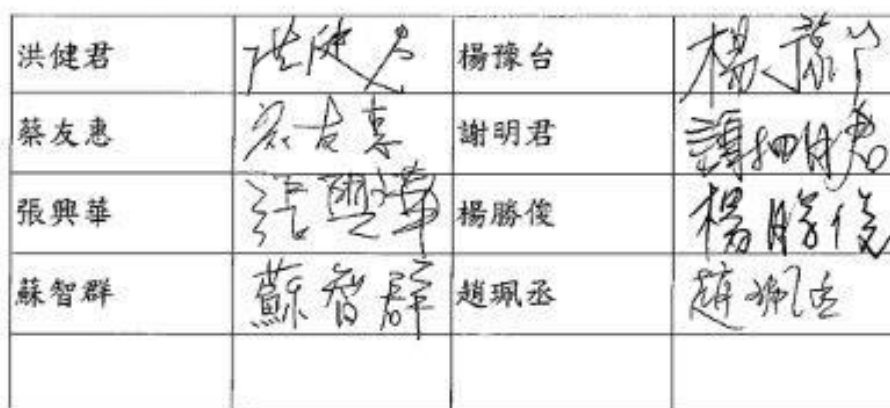 洪健君 洪健君 楊豫台 楊豫台
蔡友惠 蔡友惠 謝明君 謝明君
張興華 張興華 楊勝俊 楊勝俊
蘇智群 蘇智群 趙珮丞 趙珮丞